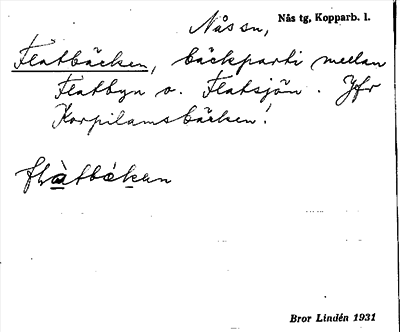 Nås sn, Nås tg, Kopparb. l.
Flatbäcken, bäckparti mellan
Flatbyn o. Flatsjön. Jfr
Korpilamsbäcken!
flàtbékan
Bror Lindén 1931